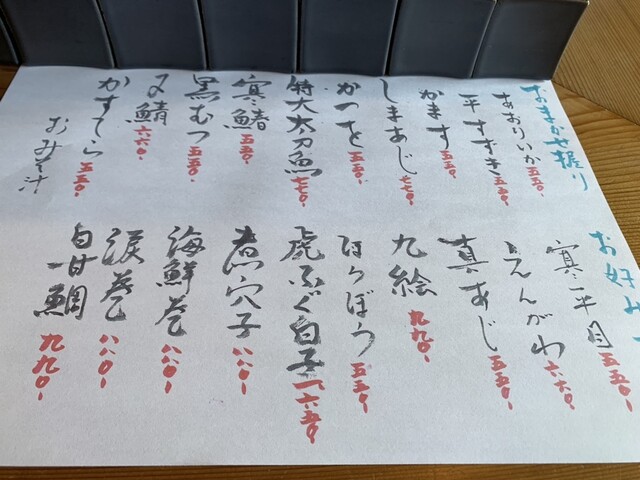 おまかせ握り
あおりいか 五五〇-
平すずき 五五〇-
かます 五五〇-
しまあじ 七七〇-
かつを 五五〇-
特大太刀魚 七七〇-
寒鰆 五五〇-
黒むつ 五五〇-
〆鯖 六六〇-
かすてら 五五〇-
おみそ汁
お好み
寒平目 五五〇-
えんがわ 六六〇-
真あじ 五五〇-
九絵 九九〇-
ほうぼう 五五〇-
虎ふぐ白子 一六五〇-
煮穴子 八八〇-
海鮮巻 八八〇-
涙巻 八八〇-
白甘鯛 九九〇-